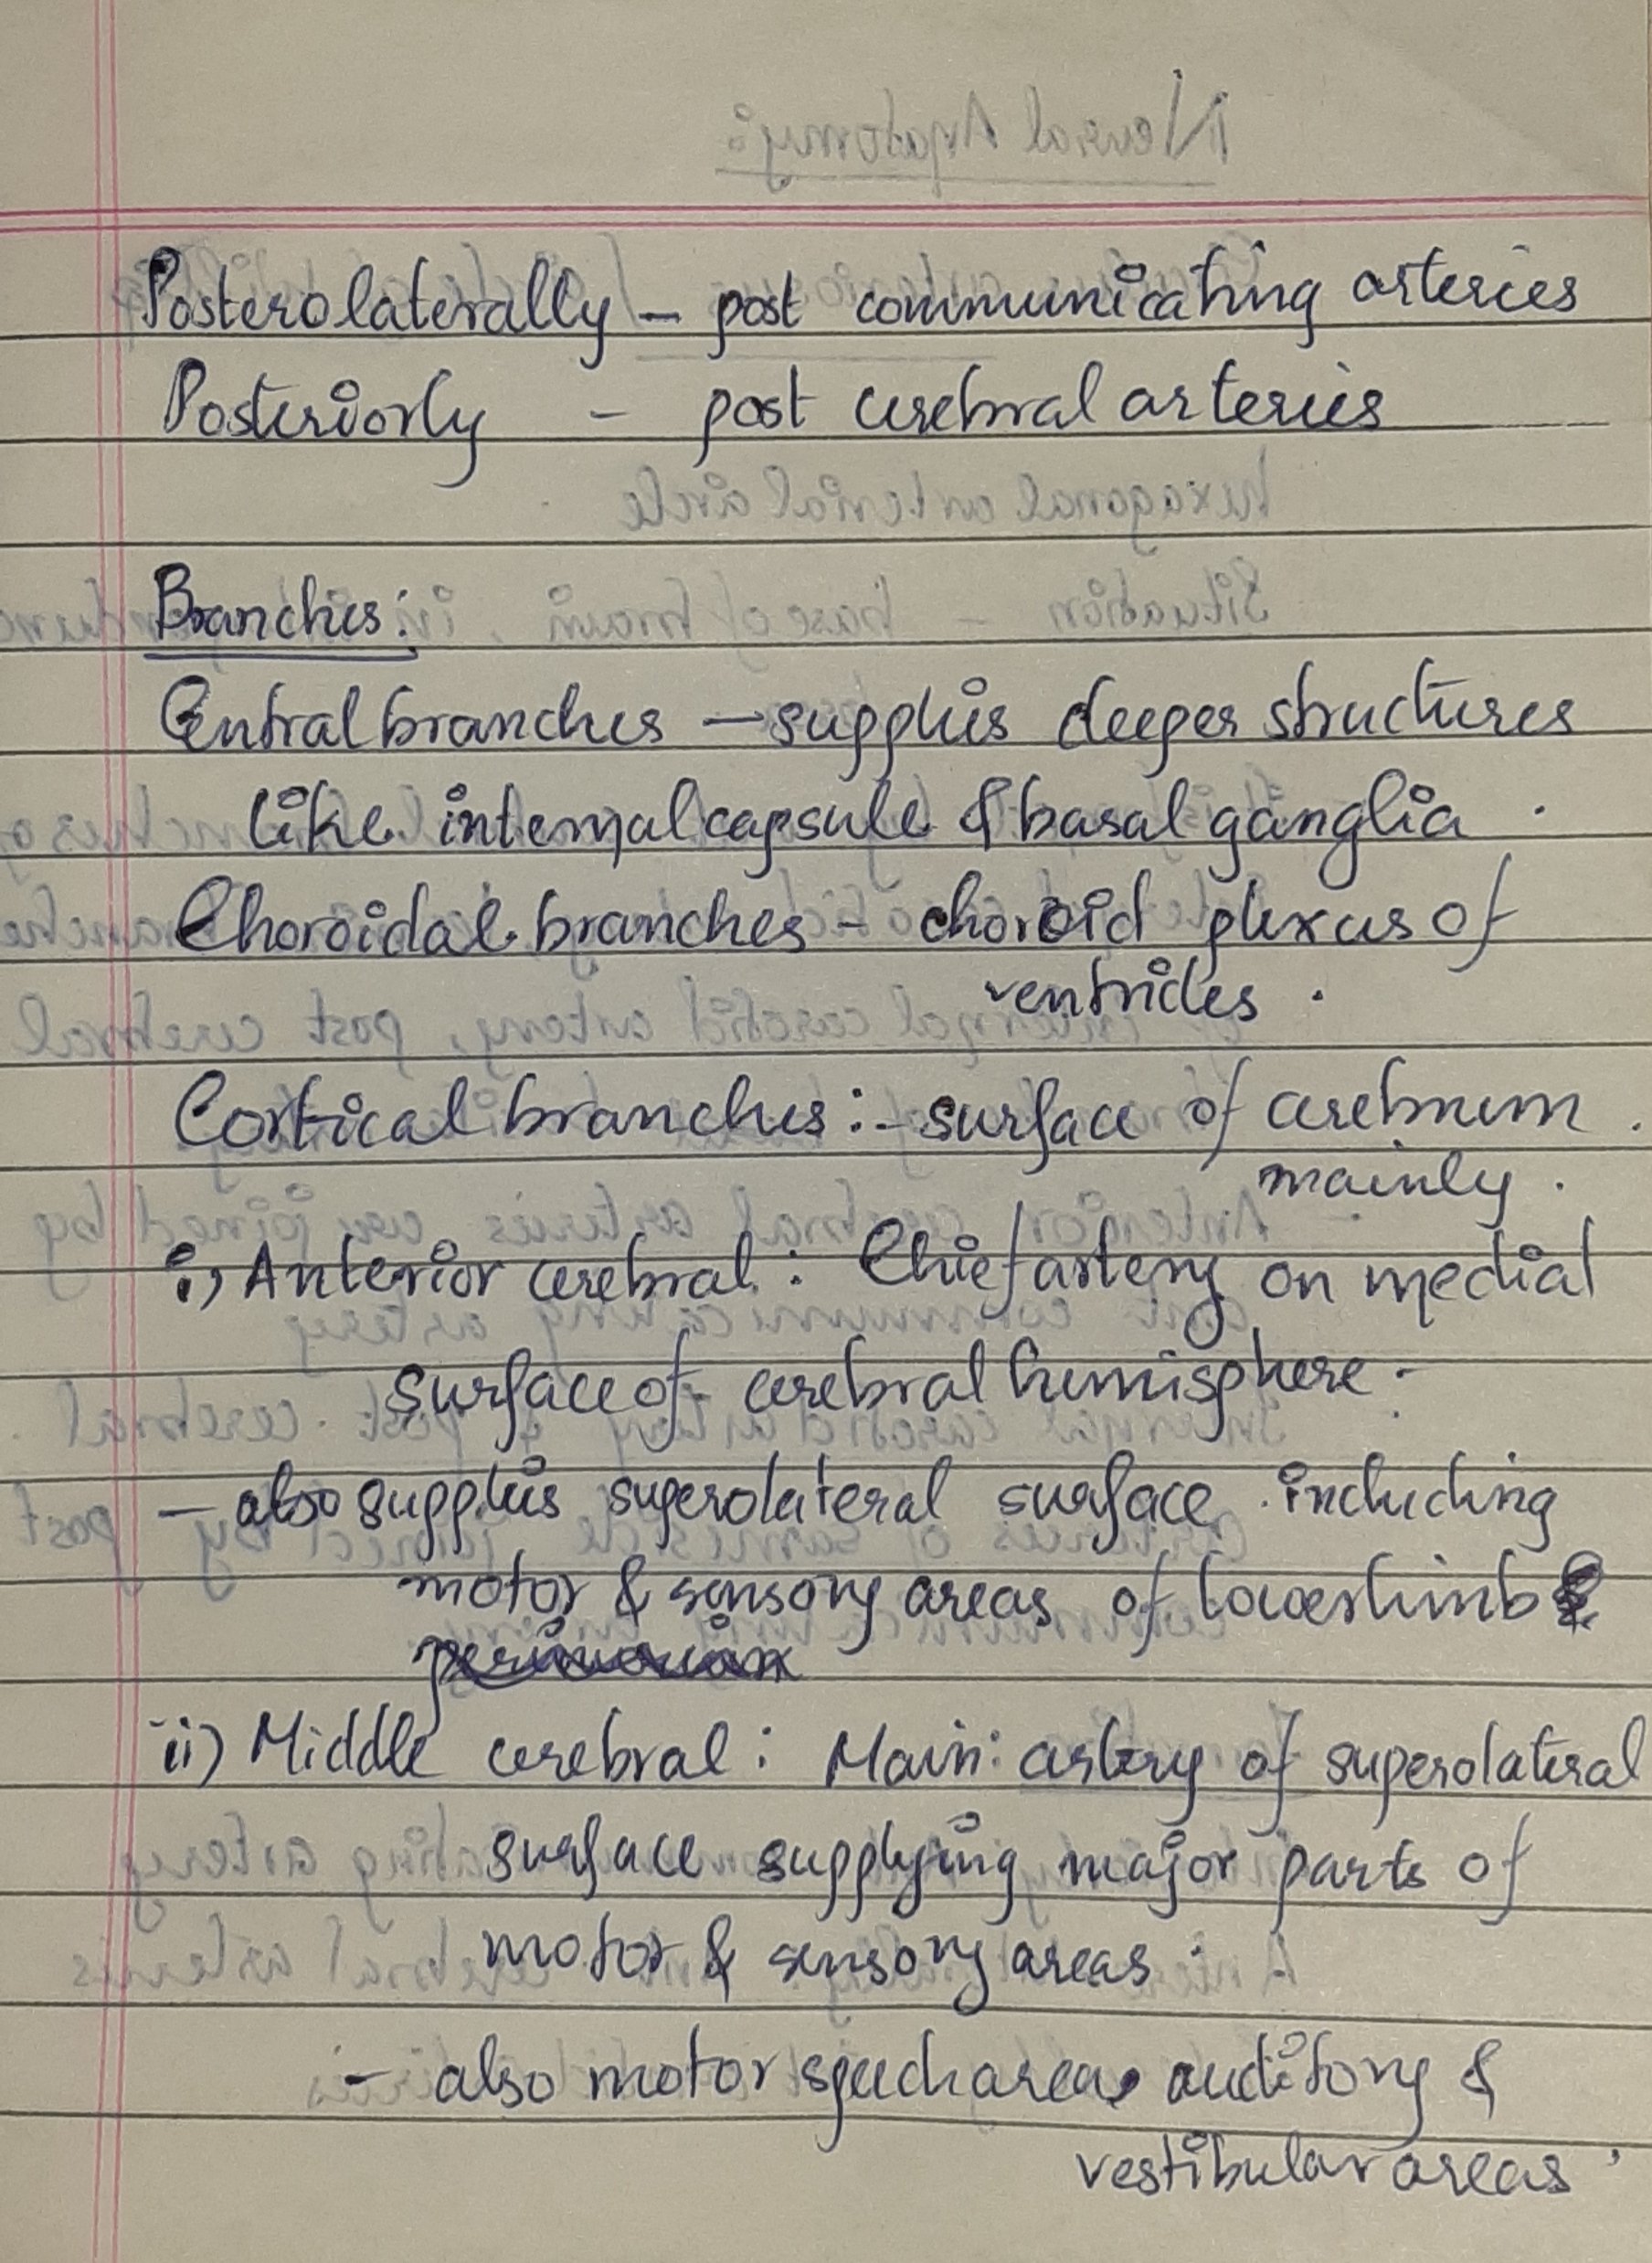 Posterolaterally – post communicating arteries
Posteriorly – post cerebral arteries
Branches:
Central branches – supplies deeper structures
like internal capsule & basal ganglia .
Choroidal branches – choroid plexus of
ventricles .
Cortical branches :- surface of cerebrum .
mainly .
i) Anterior cerebral : Chief artery on medial
surface of cerebral hemisphere .
– also supplies superolateral surface including
motor & sensory areas of lowerlimb
ii) Middle cerebral : Main artery of superolateral
surface supplying major parts of
motor & sensory areas .
– also motor speech area, auditory &
vestibular areas .